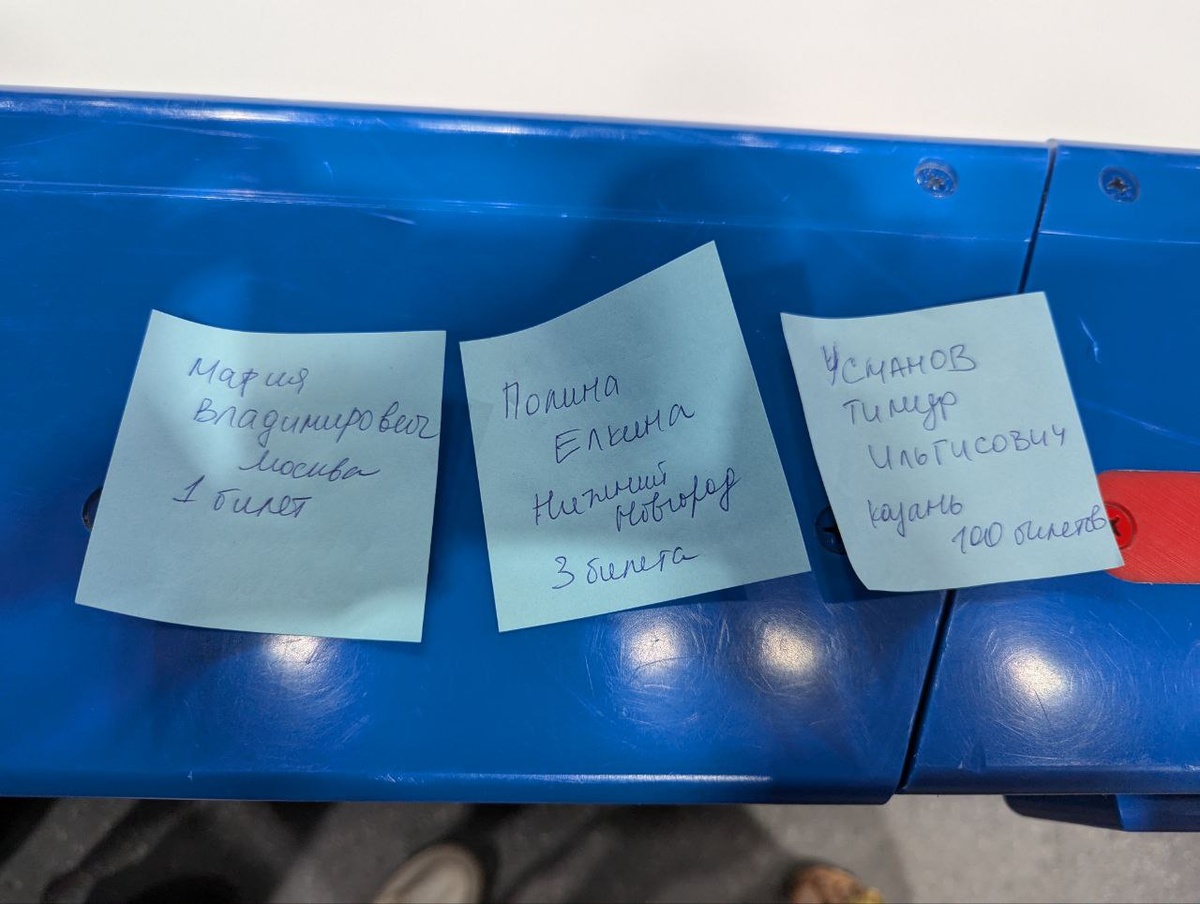 Мария
Владимирович
Москва
1 билет
Полина
Елкина
Нижний
Новгород
3 билета
Усманов
Тимур
Ильгисович
Казань
100 билетов